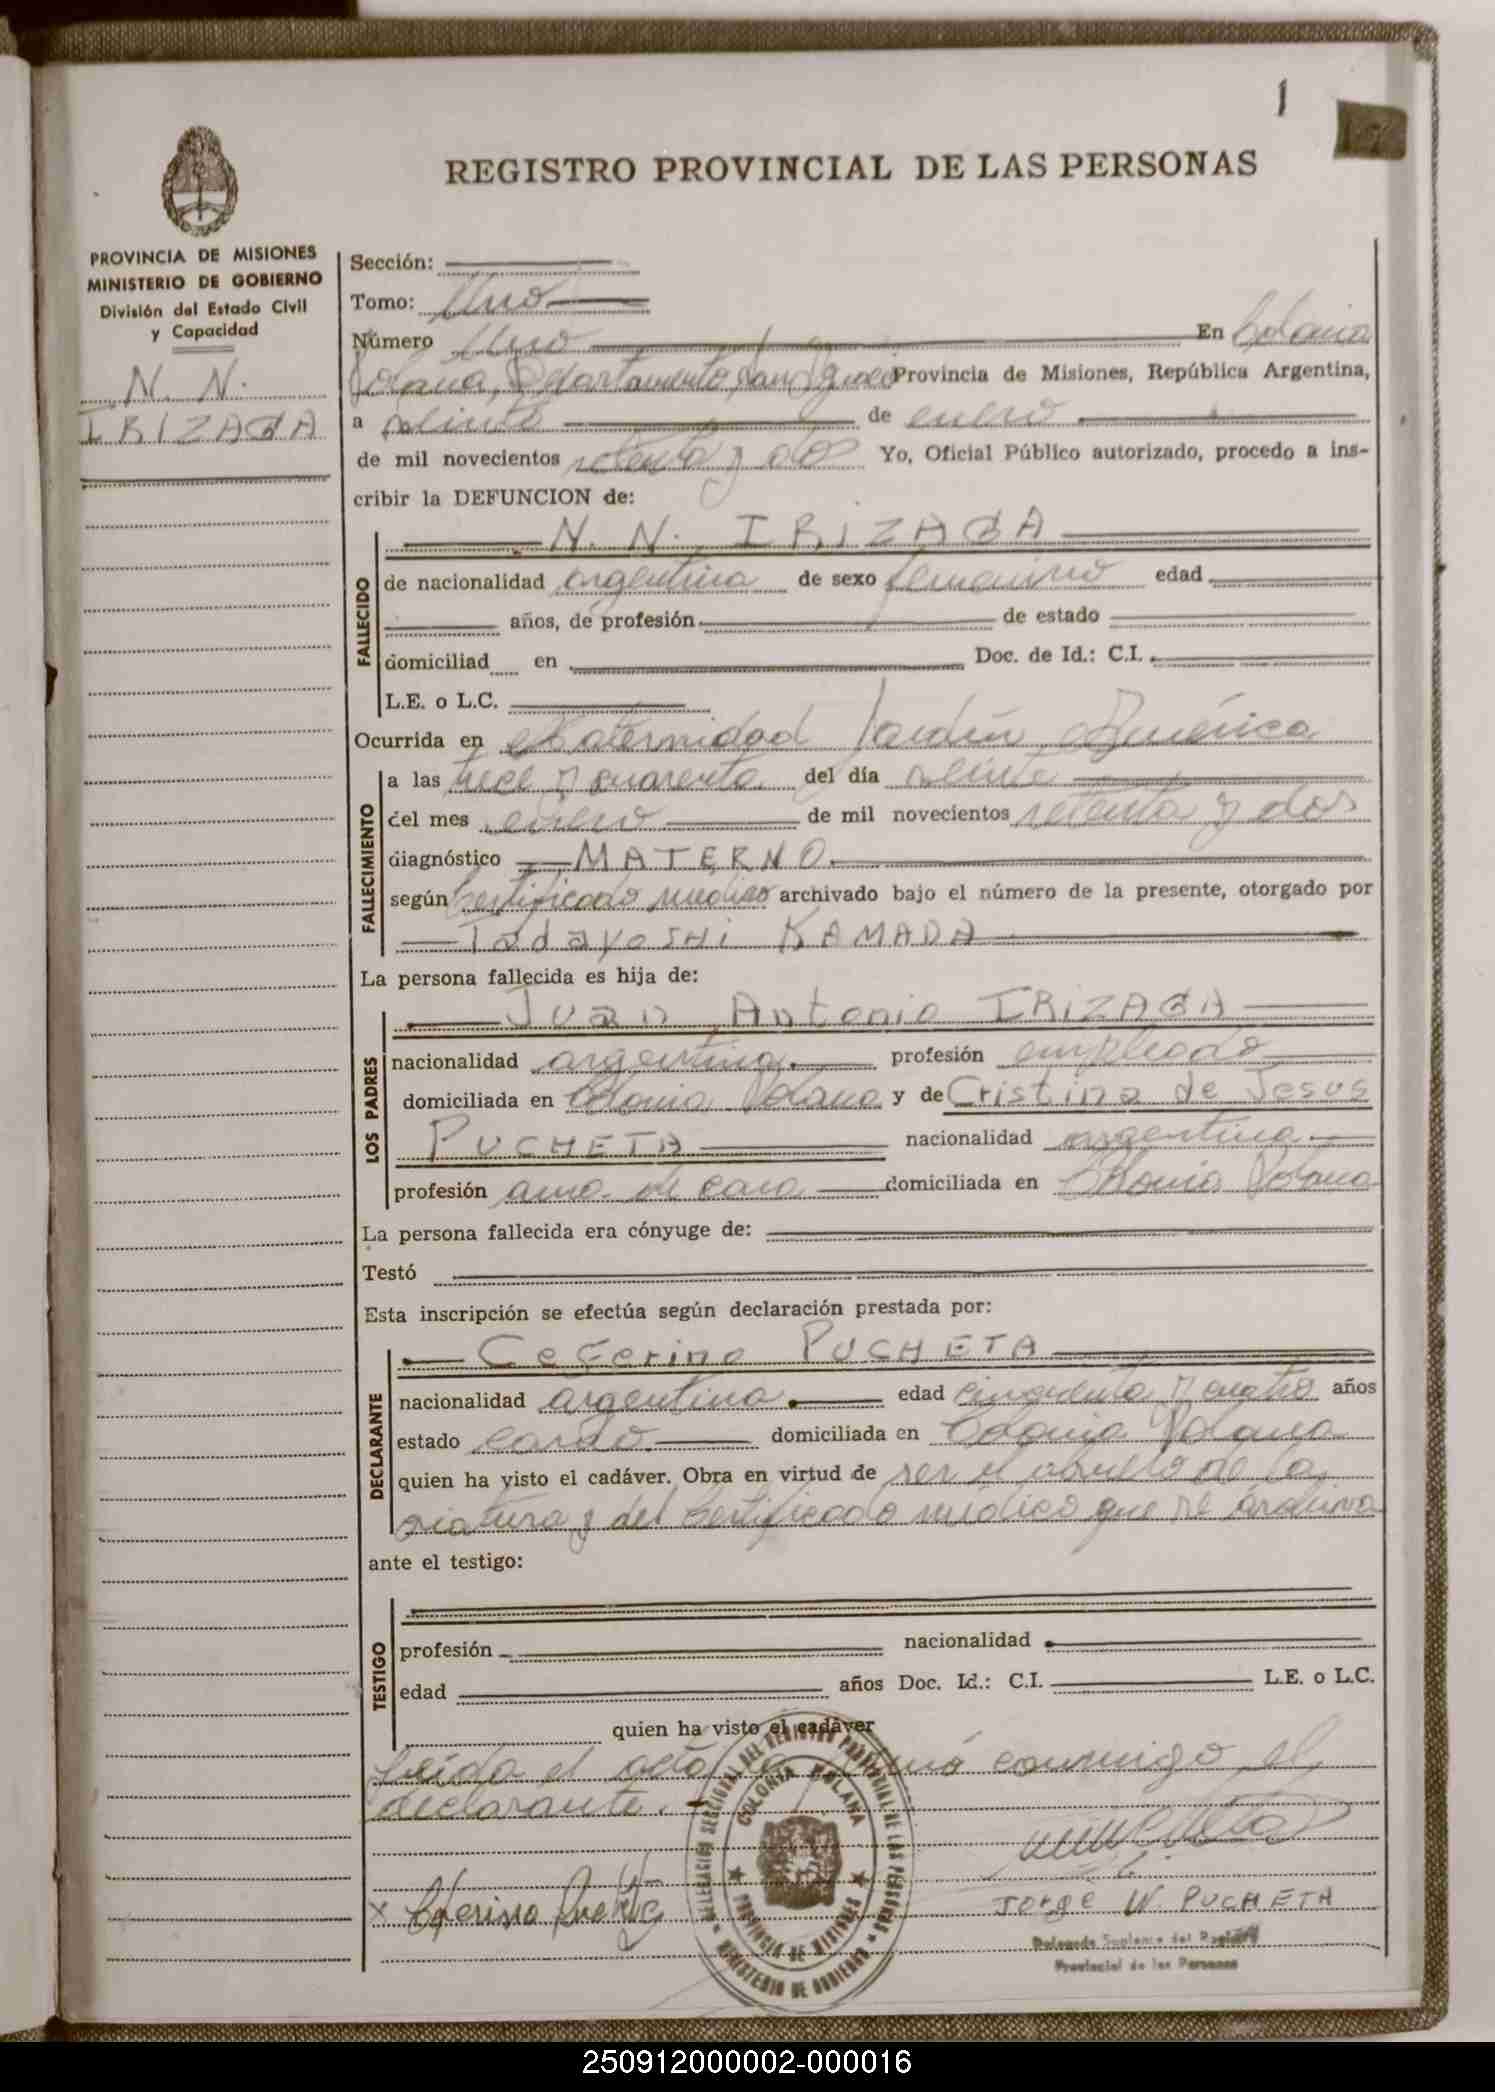 1
REGISTRO PROVINCIAL DE LAS PERSONAS
PROVINCIA DE MISIONES
MINISTERIO DE GOBIERNO
División del Estado Civil
y Capacidad
N. N.
IRIZAGA
Sección:
Tomo: Uno
Número Uno En Colonia
Polana, Departamento San Ignacio Provincia de Misiones, República Argentina,
a veinte de enero
de mil novecientos setenta y dos Yo, Oficial Público autorizado, procedo a ins-
cribir la DEFUNCION de:
N. N. IRIZAGA
FALLECIDO
de nacionalidad argentina de sexo femenino edad
años, de profesión de estado
domiciliad en Doc. de Id.: C.I.
L.E. o L.C.
Ocurrida en Maternidad Jardín América
FALLECIMIENTO
a las trece y cuarenta del día veinte
del mes enero de mil novecientos setenta y dos
diagnóstico MATERNO
según Certificado médico archivado bajo el número de la presente, otorgado por
Tadayoshi KAMADA
La persona fallecida es hija de:
LOS PADRES
Juan Antonio IRIZAGA
nacionalidad argentina profesión empleado
domiciliada en Colonia Polana y de Cristina de Jesus
PUCHETA nacionalidad argentina
profesión ama de casa domiciliada en Colonia Polana
La persona fallecida era cónyuge de:
Testó
Esta inscripción se efectúa según declaración prestada por:
DECLARANTE
Ceferino PUCHETA
nacionalidad argentina edad cincuenta y cuatro años
estado casado domiciliada en Colonia Polana
quien ha visto el cadáver. Obra en virtud de ser el abuelo de la
criatura y del Certificado médico que se archiva
ante el testigo:
TESTIGO
profesión nacionalidad
edad años Doc. Id.: C.I. L.E. o L.C.
quien ha visto el cadáver
Leída el acta la firmó conmigo el
declarante.
DELEGACION SECCIONAL DEL REGISTRO PROVINCIAL DE LAS PERSONAS
COLONIA POLANA
PROVINCIA DE MISIONES
MINISTERIO DE GOBIERNO
x Ceferino Pucheta
Jorge W. PUCHETA
Delegado Suplente del Registro
Provincial de las Personas
250912000002-000016